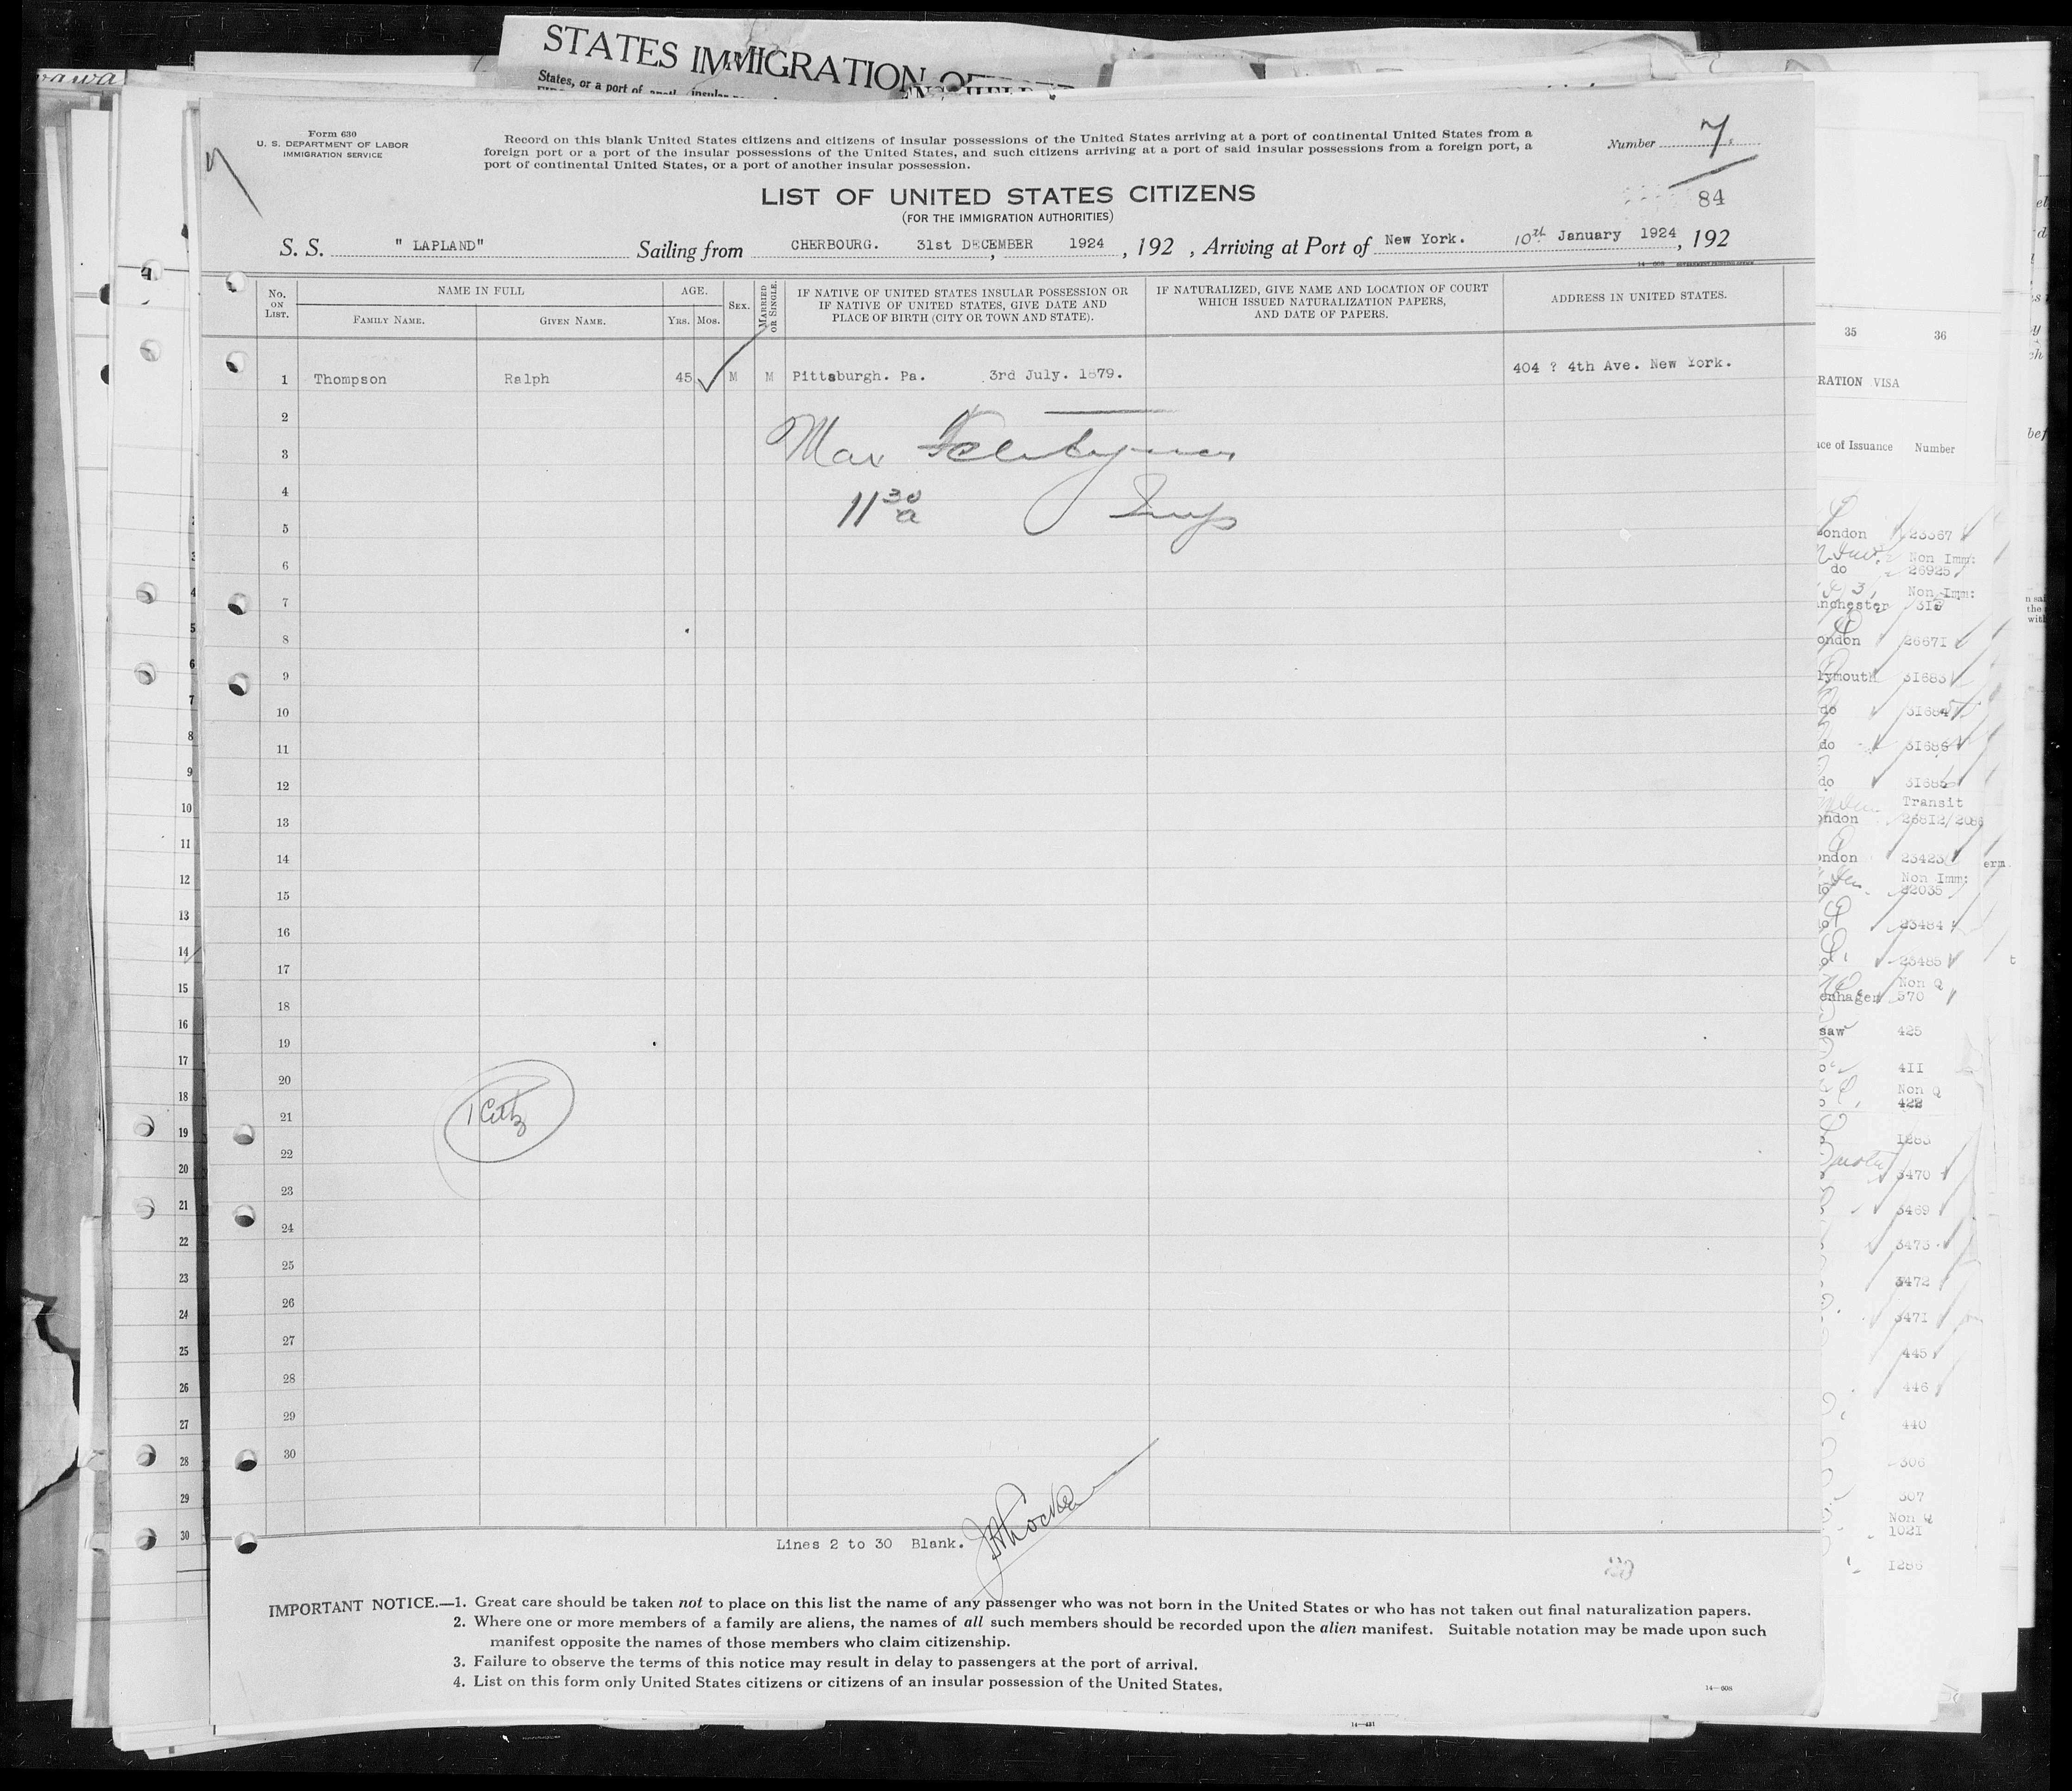 STATES IMMIGRATION
States, or a port of
Form 630
U. S. DEPARTMENT OF LABOR
IMMIGRATION SERVICE
Record on this blank United States citizens and citizens of insular possessions of the United States arriving at a port of continental United States from a
foreign port or a port of the insular possessions of the United States, and such citizens arriving at a port of said insular possessions from a foreign port, a
port of continental United States, or a port of another insular possession.
Number 7
84
LIST OF UNITED STATES CITIZENS
(FOR THE IMMIGRATION AUTHORITIES)
S. S. " LAPLAND" Sailing from CHERBOURG. 31st DECEMBER 1924, 192 , Arriving at Port of New York. 10th January 1924, 192
No. ON LIST.
NAME IN FULL
FAMILY NAME. GIVEN NAME.
AGE.
YRS. MOS.
SEX.
MARRIED OR SINGLE.
IF NATIVE OF UNITED STATES INSULAR POSSESSION OR
IF NATIVE OF UNITED STATES, GIVE DATE AND
PLACE OF BIRTH (CITY OR TOWN AND STATE).
IF NATURALIZED, GIVE NAME AND LOCATION OF COURT
WHICH ISSUED NATURALIZATION PAPERS,
AND DATE OF PAPERS.
ADDRESS IN UNITED STATES.
1 Thompson Ralph 45 M M Pittsburgh. Pa. 3rd July. 1879. 404 ? 4th Ave. New York.
2
3 Max
4 11 30 a
5
6
7
8
9
10
11
12
13
14
15
16
17
18
19
20
21 1 Citz
22
23
24
25
26
27
28
29
30
Lines 2 to 30 Blank.
IMPORTANT NOTICE.—1. Great care should be taken not to place on this list the name of any passenger who was not born in the United States or who has not taken out final naturalization papers.
2. Where one or more members of a family are aliens, the names of all such members should be recorded upon the alien manifest. Suitable notation may be made upon such
manifest opposite the names of those members who claim citizenship.
3. Failure to observe the terms of this notice may result in delay to passengers at the port of arrival.
4. List on this form only United States citizens or citizens of an insular possession of the United States.
14—608
35 36
VISA
of Issuance Number
Non Imm:
do 26925
Non Imm:
26671
31683
do 31684
do
do
Transit
23423
Non Imm:
22035
23484
23485
Non Q
570
425
411
Non Q
422
1283
3470
3469
3473
3472
3471
445
446
440
306
307
Non Q
1021
1286